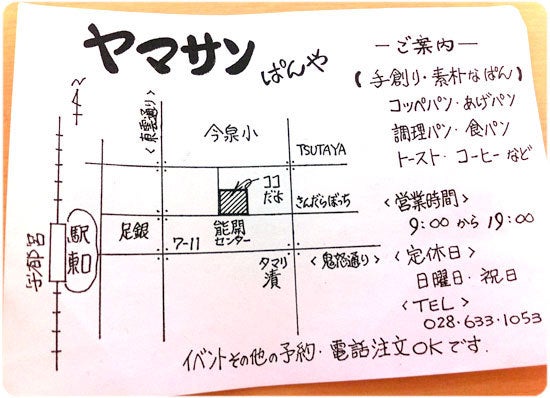 ヤマサン
ぱんや
ーご案内ー
(手創り・素朴なぱん)
コッペパン・あげパン
調理パン・食パン
トースト・コーヒーなど
<営業時間>
9:00から19:00
<定休日>
日曜日・祝日
<TEL>
028・633・1053
N
<東雲通り>
今泉小
TSUTAYA
ココ
だよ
さんだらぼっち
足銀
7-11
能開
センター
タマリ
漬
<鬼怒通り>
宇都宮
駅
東口
イベントその他の予約・電話注文OKです.